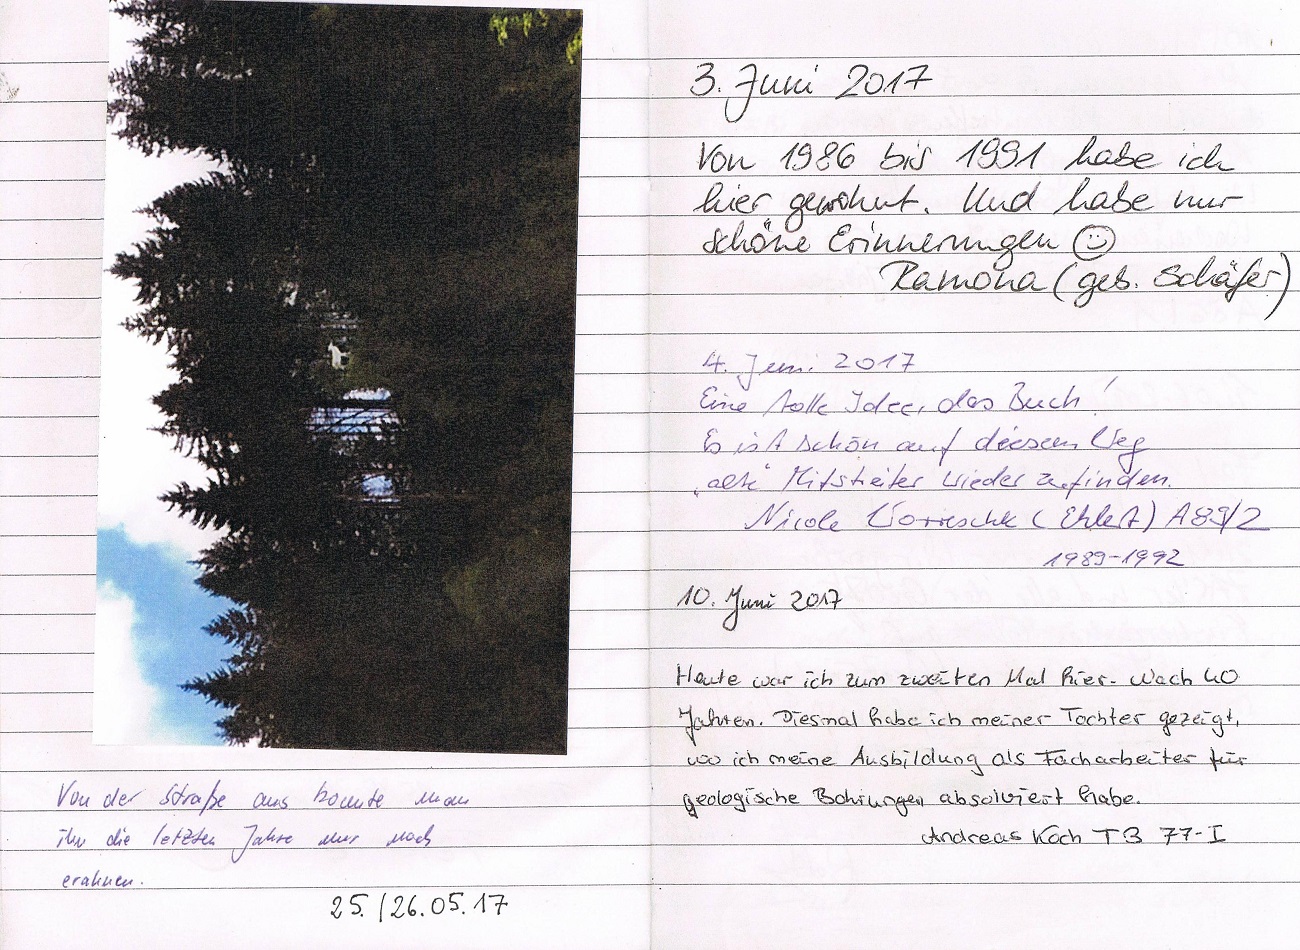 Von der Straße aus konnte man
ihn die letzten Jahre nur noch
erahnen.
25./26.05.17
3. Juni 2017
Von 1986 bis 1991 habe ich
hier gewohnt. Und habe nur
schöne Erinnerungen ☺
Ramona (geb. Schäfer)
4. Juni 2017
Eine tolle Idee, das Buch!
Es ist schön auf diesem Weg
"alte" Mitstreiter wieder zufinden.
Nicole (Ehlert) A89/2
1989-1992
10. Juni 2017
Heute war ich zum zweiten Mal hier. Nach 40
Jahren. Diesmal habe ich meiner Tochter gezeigt,
wo ich meine Ausbildung als Facharbeiter für
geologische Bohrungen absolviert habe.
Andreas Koch TB 77-I